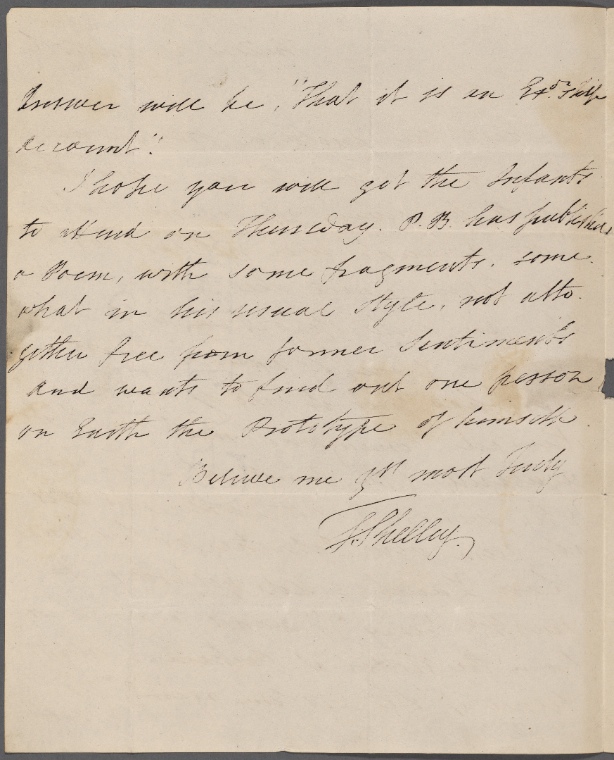 Answer will be, "That it is an
account".
I hope you will get the Infants
to attend on Thursday. P.B. has published
a Poem, with some fragments, some-
what in his usual style, not alto-
gether free from former Sentiments
and wants to find out one person
on Earth the Prototype of himself.
Believe me yrs most Truly
T. Shelley.